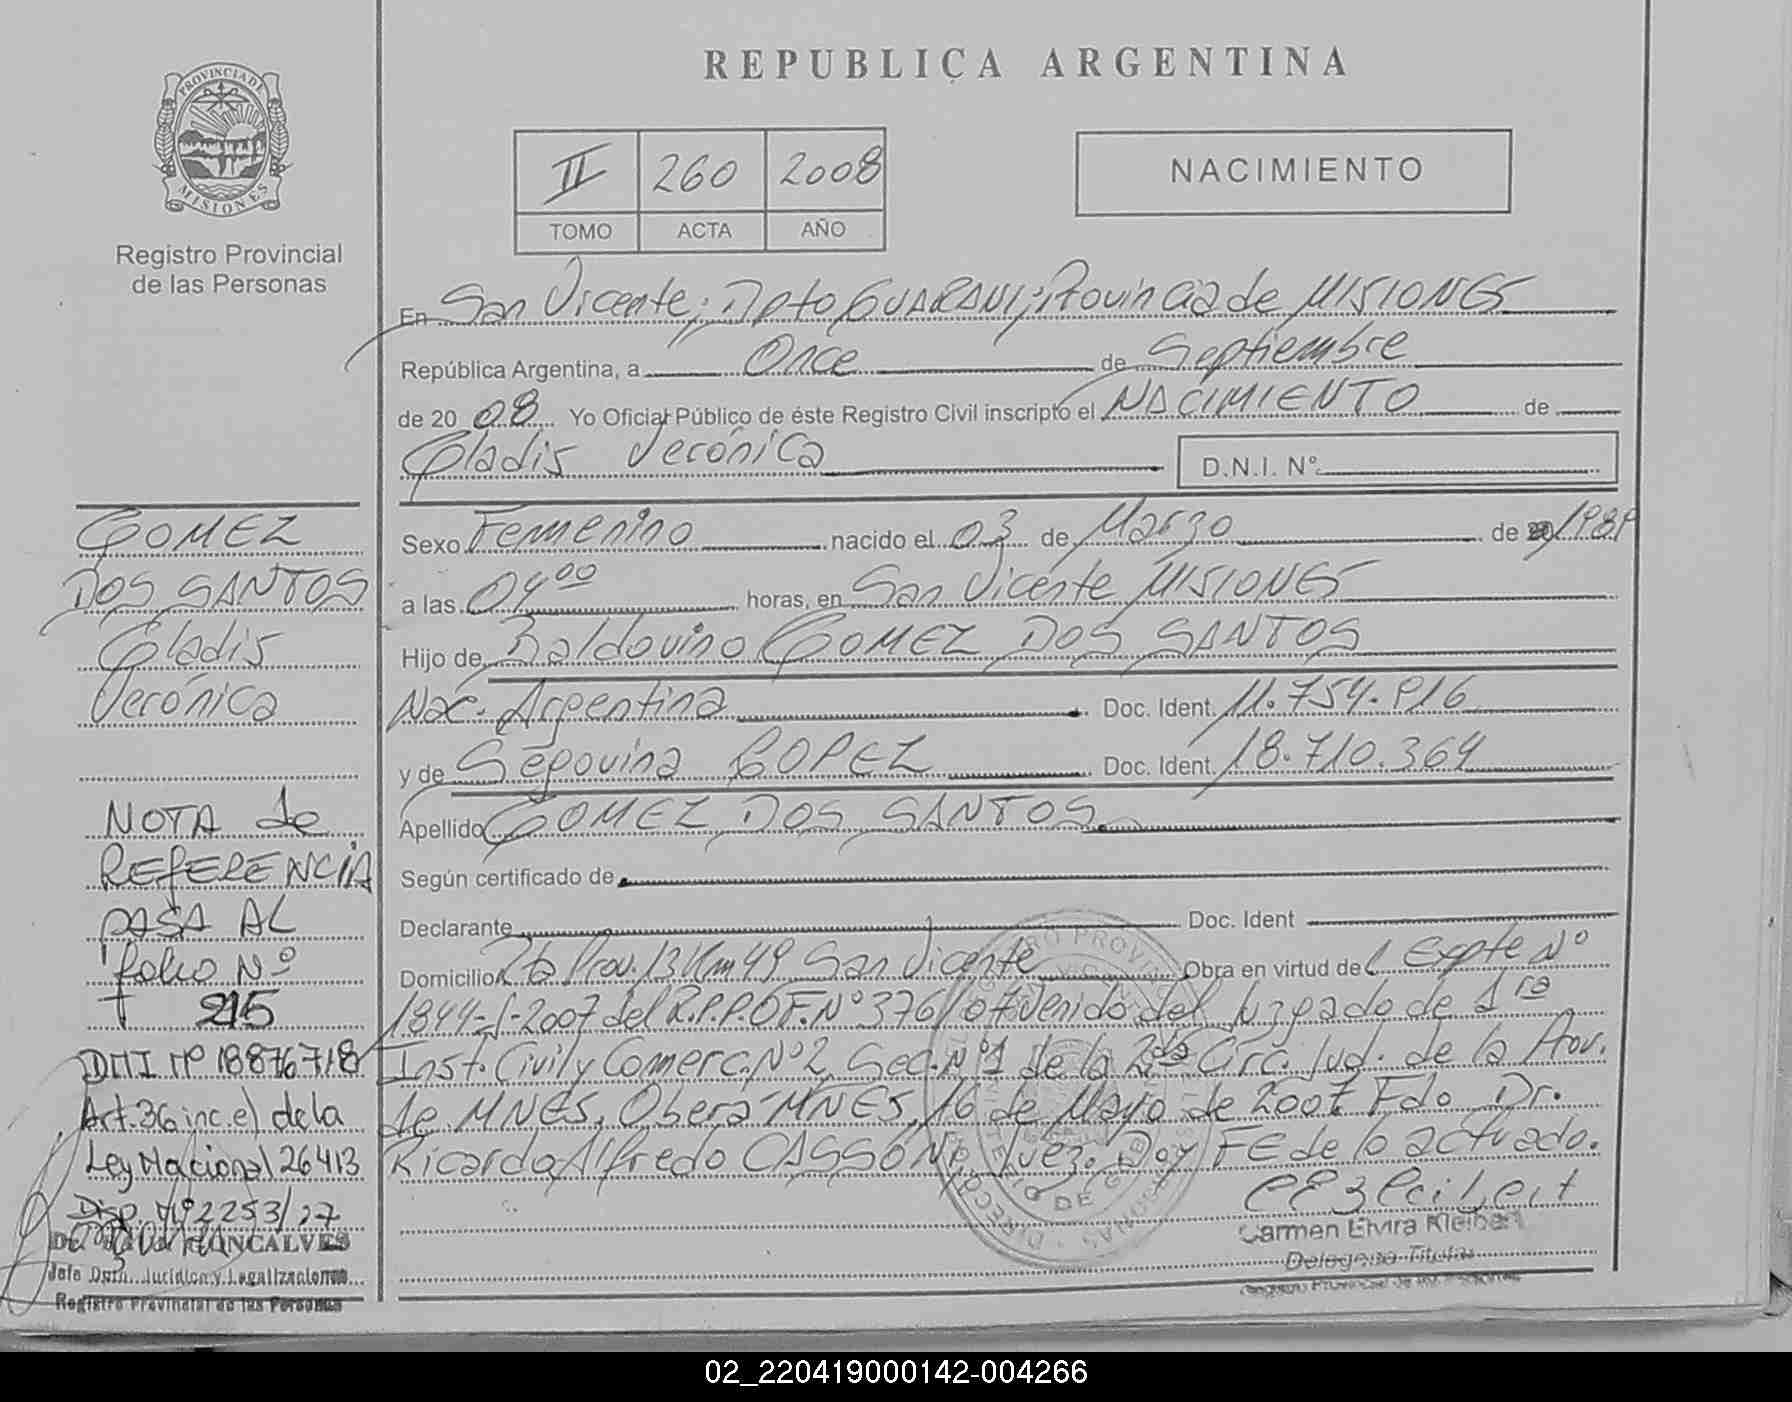 REPUBLICA ARGENTINA
PROVINCIA DE
MISIONES
Registro Provincial
de las Personas
II 260 2008
TOMO ACTA AÑO
NACIMIENTO
En San Vicente; Dpto GUARANI; Provincia de MISIONES
República Argentina, a Once de Septiembre
de 2008 Yo Oficial Público de éste Registro Civil inscripto el NACIMIENTO de
Gladis Verónica D.N.I. Nº
Sexo Femenino nacido el 03 de Marzo de 1989
a las 04 00 horas, en San Vicente MISIONES
Hijo de Baldovino GOMEZ DOS SANTOS
Nac. Argentina Doc. Ident. 11.754.916
y de Segovina LOPEZ Doc. Ident. 18.710.364
Apellido GOMEZ DOS SANTOS
Según certificado de
Declarante Doc. Ident
Domicilio Rta Prov. 13 Km 49 San Vicente Obra en virtud del Expte Nº
1844-J-2007 del R.P.P. OF. Nº 376/07 venido del Juzgado de 1ra
Inst. Civil y Comerc. Nº 2, Sec. Nº 1 de la 2da Circ. Jud. de la Prov.
de MNES, Obera-MNES, 16 de Mayo de 2007 Fdo Dr.
Ricardo Alfredo CASSONI, Juez. Doy FE de lo actuado.
Carmen Elvira Kleibert
Delegada Titular
Registro Provincial de las Personas
GOMEZ
DOS SANTOS
Gladis
Verónica
NOTA de
REFERENCIA
PASA AL
folio Nº
215
DNI Nº 18876718
Art. 36 inc. e) de la
Ley Nacional 26413
Disp. Nº 2253/27
GONCALVES
Jefe Dpto. Jurídico y Legalizaciones
Registro Provincial de las Personas
02_220419000142-004266